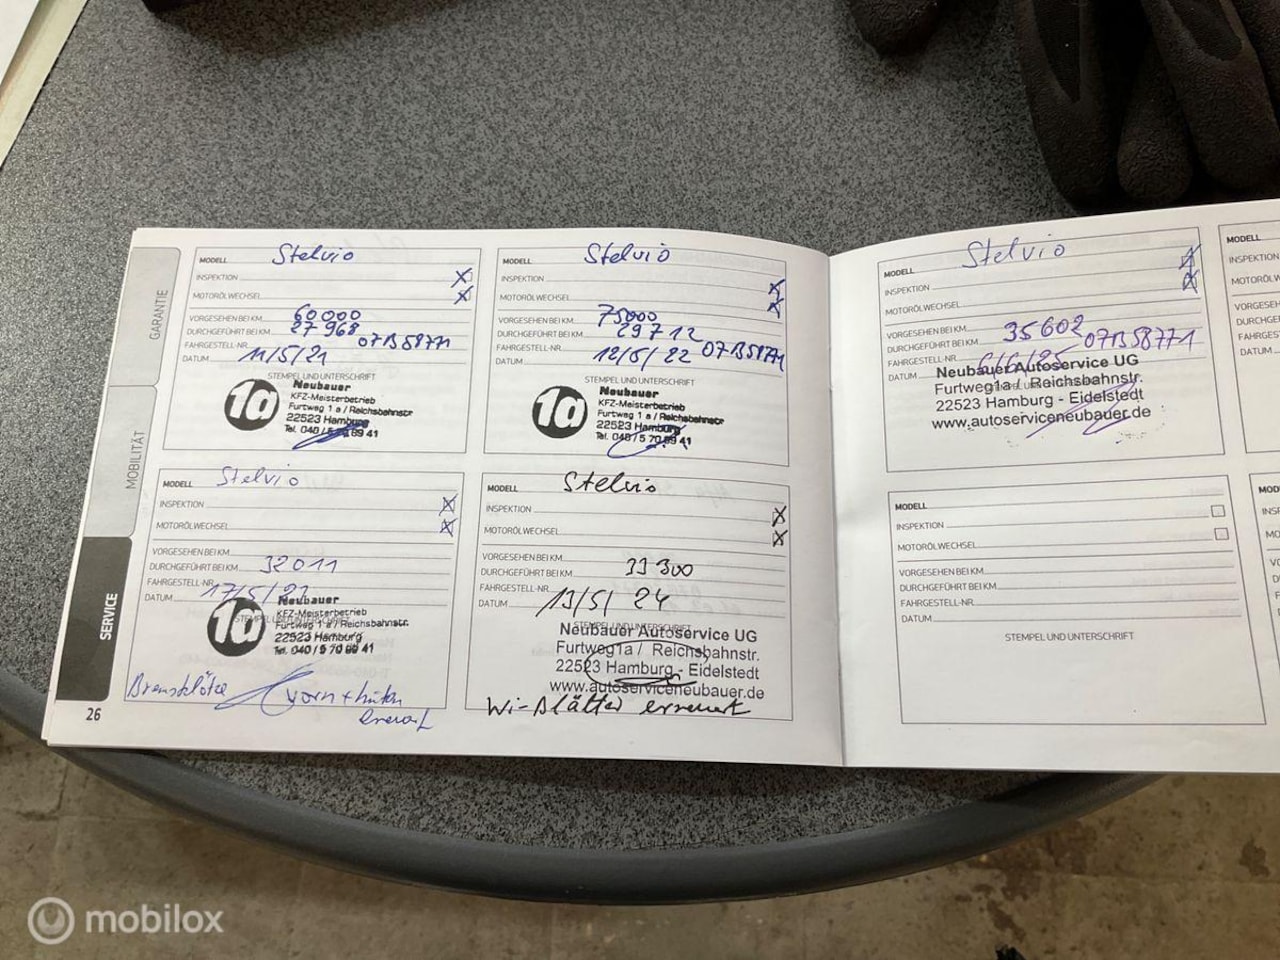 GARANTIE
MOBILITÄT
SERVICE
MODELL Stelvio
INSPEKTION X
MOTORÖLWECHSEL X
VORGESEHEN BEI KM 60000
DURCHGEFÜHRT BEI KM 27968
FAHRGESTELL-NR. 07B58771
DATUM 11/5/21
STEMPEL UND UNTERSCHRIFT
1a Neubauer
KFZ-Meisterbetrieb
Furtweg 1 a / Reichsbahnstr
22523 Hamburg
Tel. 040 / 5 70 89 41
MODELL Stelvio
INSPEKTION X
MOTORÖLWECHSEL X
VORGESEHEN BEI KM 75000
DURCHGEFÜHRT BEI KM 29712
FAHRGESTELL-NR. 07B58771
DATUM 12/5/22
STEMPEL UND UNTERSCHRIFT
1a Neubauer
KFZ-Meisterbetrieb
Furtweg 1 a / Reichsbahnstr
22523 Hamburg
Tel. 040 / 5 70 89 41
MODELL Stelvio
INSPEKTION X
MOTORÖLWECHSEL X
VORGESEHEN BEI KM
DURCHGEFÜHRT BEI KM 32011
FAHRGESTELL-NR.
DATUM 17/5/23
STEMPEL UND UNTERSCHRIFT
1a Neubauer
KFZ-Meisterbetrieb
Furtweg 1 a / Reichsbahnstr.
22523 Hamburg
Tel. 040 / 5 70 89 41
Bremsklötze vorn + hinten
26
MODELL Stelvio
INSPEKTION X
MOTORÖLWECHSEL X
VORGESEHEN BEI KM
DURCHGEFÜHRT BEI KM 33300
FAHRGESTELL-NR.
DATUM 13/5/24
STEMPEL UND UNTERSCHRIFT
Neubauer Autoservice UG
Furtweg1a / Reichsbahnstr.
22523 Hamburg - Eidelstedt
www.autoserviceneubauer.de
Wi-Blätter erneuert
MODELL Stelvio
INSPEKTION X
MOTORÖLWECHSEL X
VORGESEHEN BEI KM
DURCHGEFÜHRT BEI KM 35602
FAHRGESTELL-NR. 07B58771
DATUM 6/6/25
Neubauer Autoservice UG
Furtweg1a / Reichsbahnstr.
22523 Hamburg - Eidelstedt
www.autoserviceneubauer.de
MODELL
INSPEKTION
MOTORÖLWECHSEL
VORGESEHEN BEI KM
DURCHGEFÜHRT BEI KM
FAHRGESTELL-NR
DATUM
STEMPEL UND UNTERSCHRIFT
MODELL
mobilox